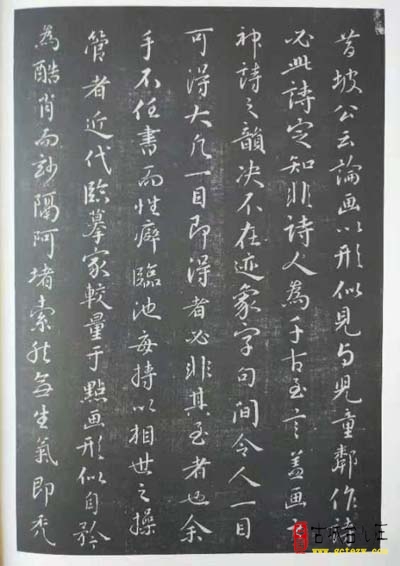 昔坡公云論画以形似見与児童鄰作詩
必此詩定知非詩人為千古至言蓋画之
神詩之韻决不在迹象字句間令人一目
可得大凡一目即得者必非其至者也余
手不任書而性癖臨池每持以相世之操
管者近代臨摹家較量于點画形似自矜
為酷肖而訬隔阿堵索然無生氣即禿
www.gctezw.com